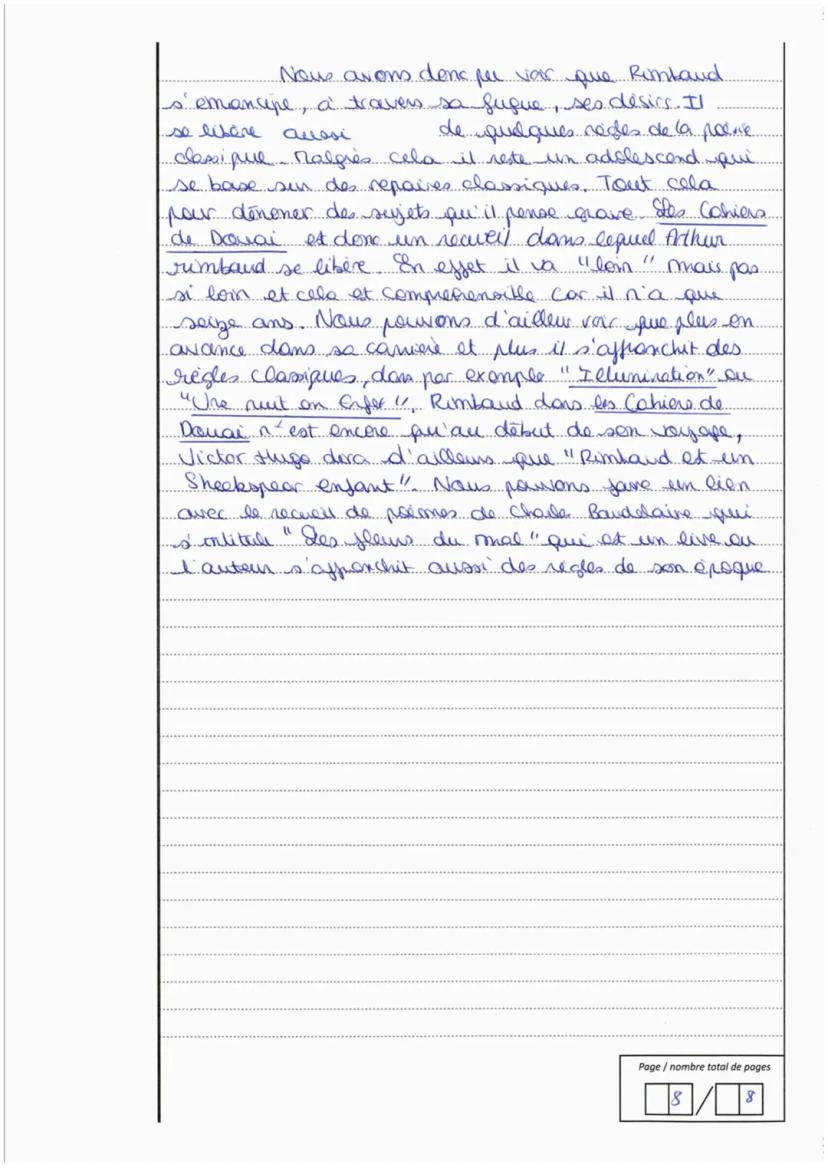 Nous avons donc pu voir que Rimbaud
s'emancipe, à travers sa fugue, ses désirs. Il
se libère aussi de quelques règles de la poésie
classique. Malgrès cela il reste un adolescend qui
se base sur des repaires classiques. Tout cela
pour dénoncer des sujets qu'il pense grave. Les Cahiers
de Douai et donc un recueil dans lequel Arthur
rimbaud se libère. En effet il va "loin" mais pas
si loin et cela et comprehensible car il n'a que
seize ans. Nous pouvons d'ailleur voir que plus on
avance dans sa carrière et plus il s'affranchit des
règles classiques, dans par exemple "Illumination" ou
"Une nuit en Enfer". Rimbaud dans les Cahiers de
Douai n'est encore qu'au début de son voyage,
Victor Hugo dira d'ailleurs que "Rimbaud et un
Sheekspear enfant". Nous pouvons faire un lien
avec le recueil de poèmes de Charle Baudelaire qui
s'intitule "Les fleurs du mal" qui et un livre ou
l'auteur s'affranchit aussi des règles de son époque
Page / nombre total de pages
8 / 8